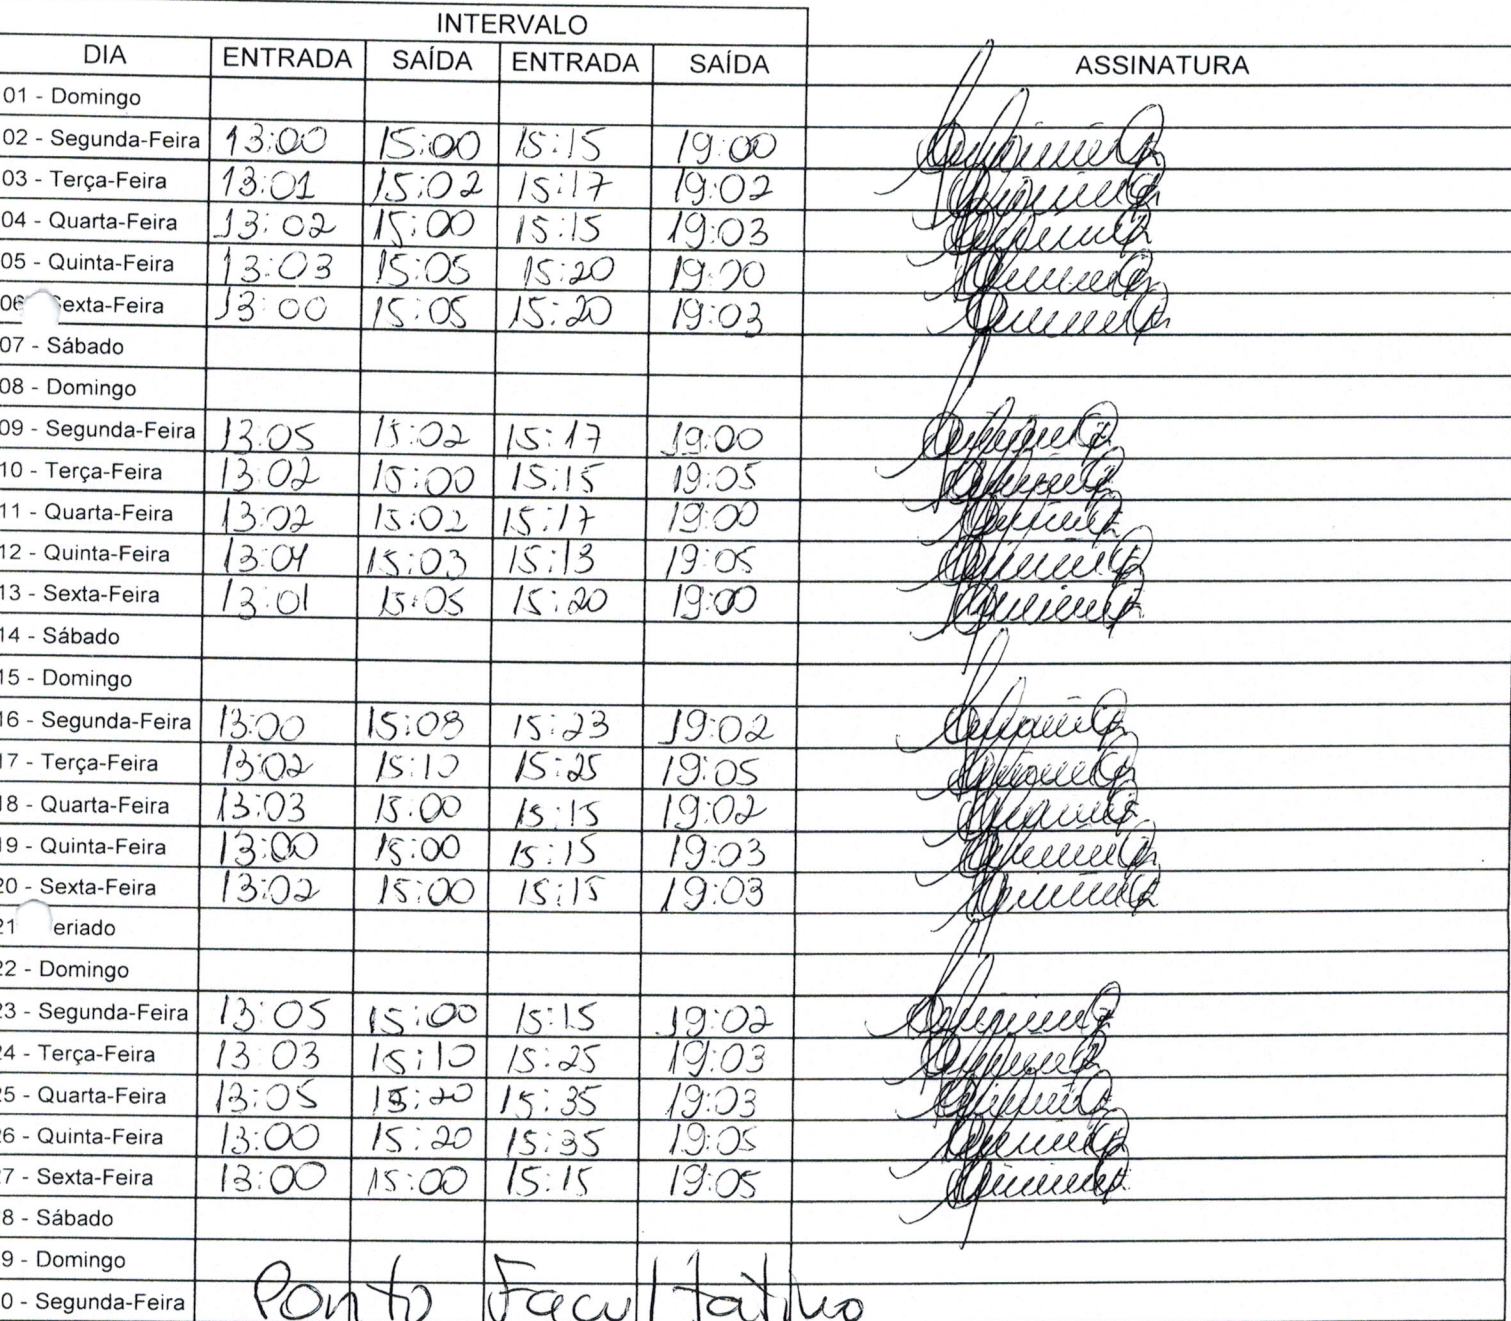 INTERVALO
DIA ENTRADA SAÍDA ENTRADA SAÍDA ASSINATURA
01 - Domingo
02 - Segunda-Feira 13:00 15:00 15:15 19:00
03 - Terça-Feira 13:01 15:02 15:17 19:02
04 - Quarta-Feira 13:02 15:00 15:15 19:03
05 - Quinta-Feira 13:03 15:05 15:20 19:00
06 exta-Feira 13:00 15:05 15:20 19:03
07 - Sábado
08 - Domingo
09 - Segunda-Feira 13:05 15:02 15:17 19:00
10 - Terça-Feira 13:02 15:00 15:15 19:05
11 - Quarta-Feira 13:02 15:02 15:17 19:00
12 - Quinta-Feira 13:04 15:03 15:13 19:05
13 - Sexta-Feira 13:01 15:05 15:20 19:00
14 - Sábado
15 - Domingo
16 - Segunda-Feira 13:00 15:08 15:23 19:02
17 - Terça-Feira 13:02 15:10 15:25 19:05
18 - Quarta-Feira 13:03 15:00 15:15 19:02
19 - Quinta-Feira 13:00 15:00 15:15 19:03
20 - Sexta-Feira 13:02 15:00 15:15 19:03
21 eriado
22 - Domingo
23 - Segunda-Feira 13:05 15:00 15:15 19:02
24 - Terça-Feira 13:03 15:10 15:25 19:03
25 - Quarta-Feira 13:05 15:20 15:35 19:03
26 - Quinta-Feira 13:00 15:20 15:35 19:05
7 - Sexta-Feira 13:00 15:00 15:15 19:05
8 - Sábado
9 - Domingo
0 - Segunda-Feira Ponto Facultativo